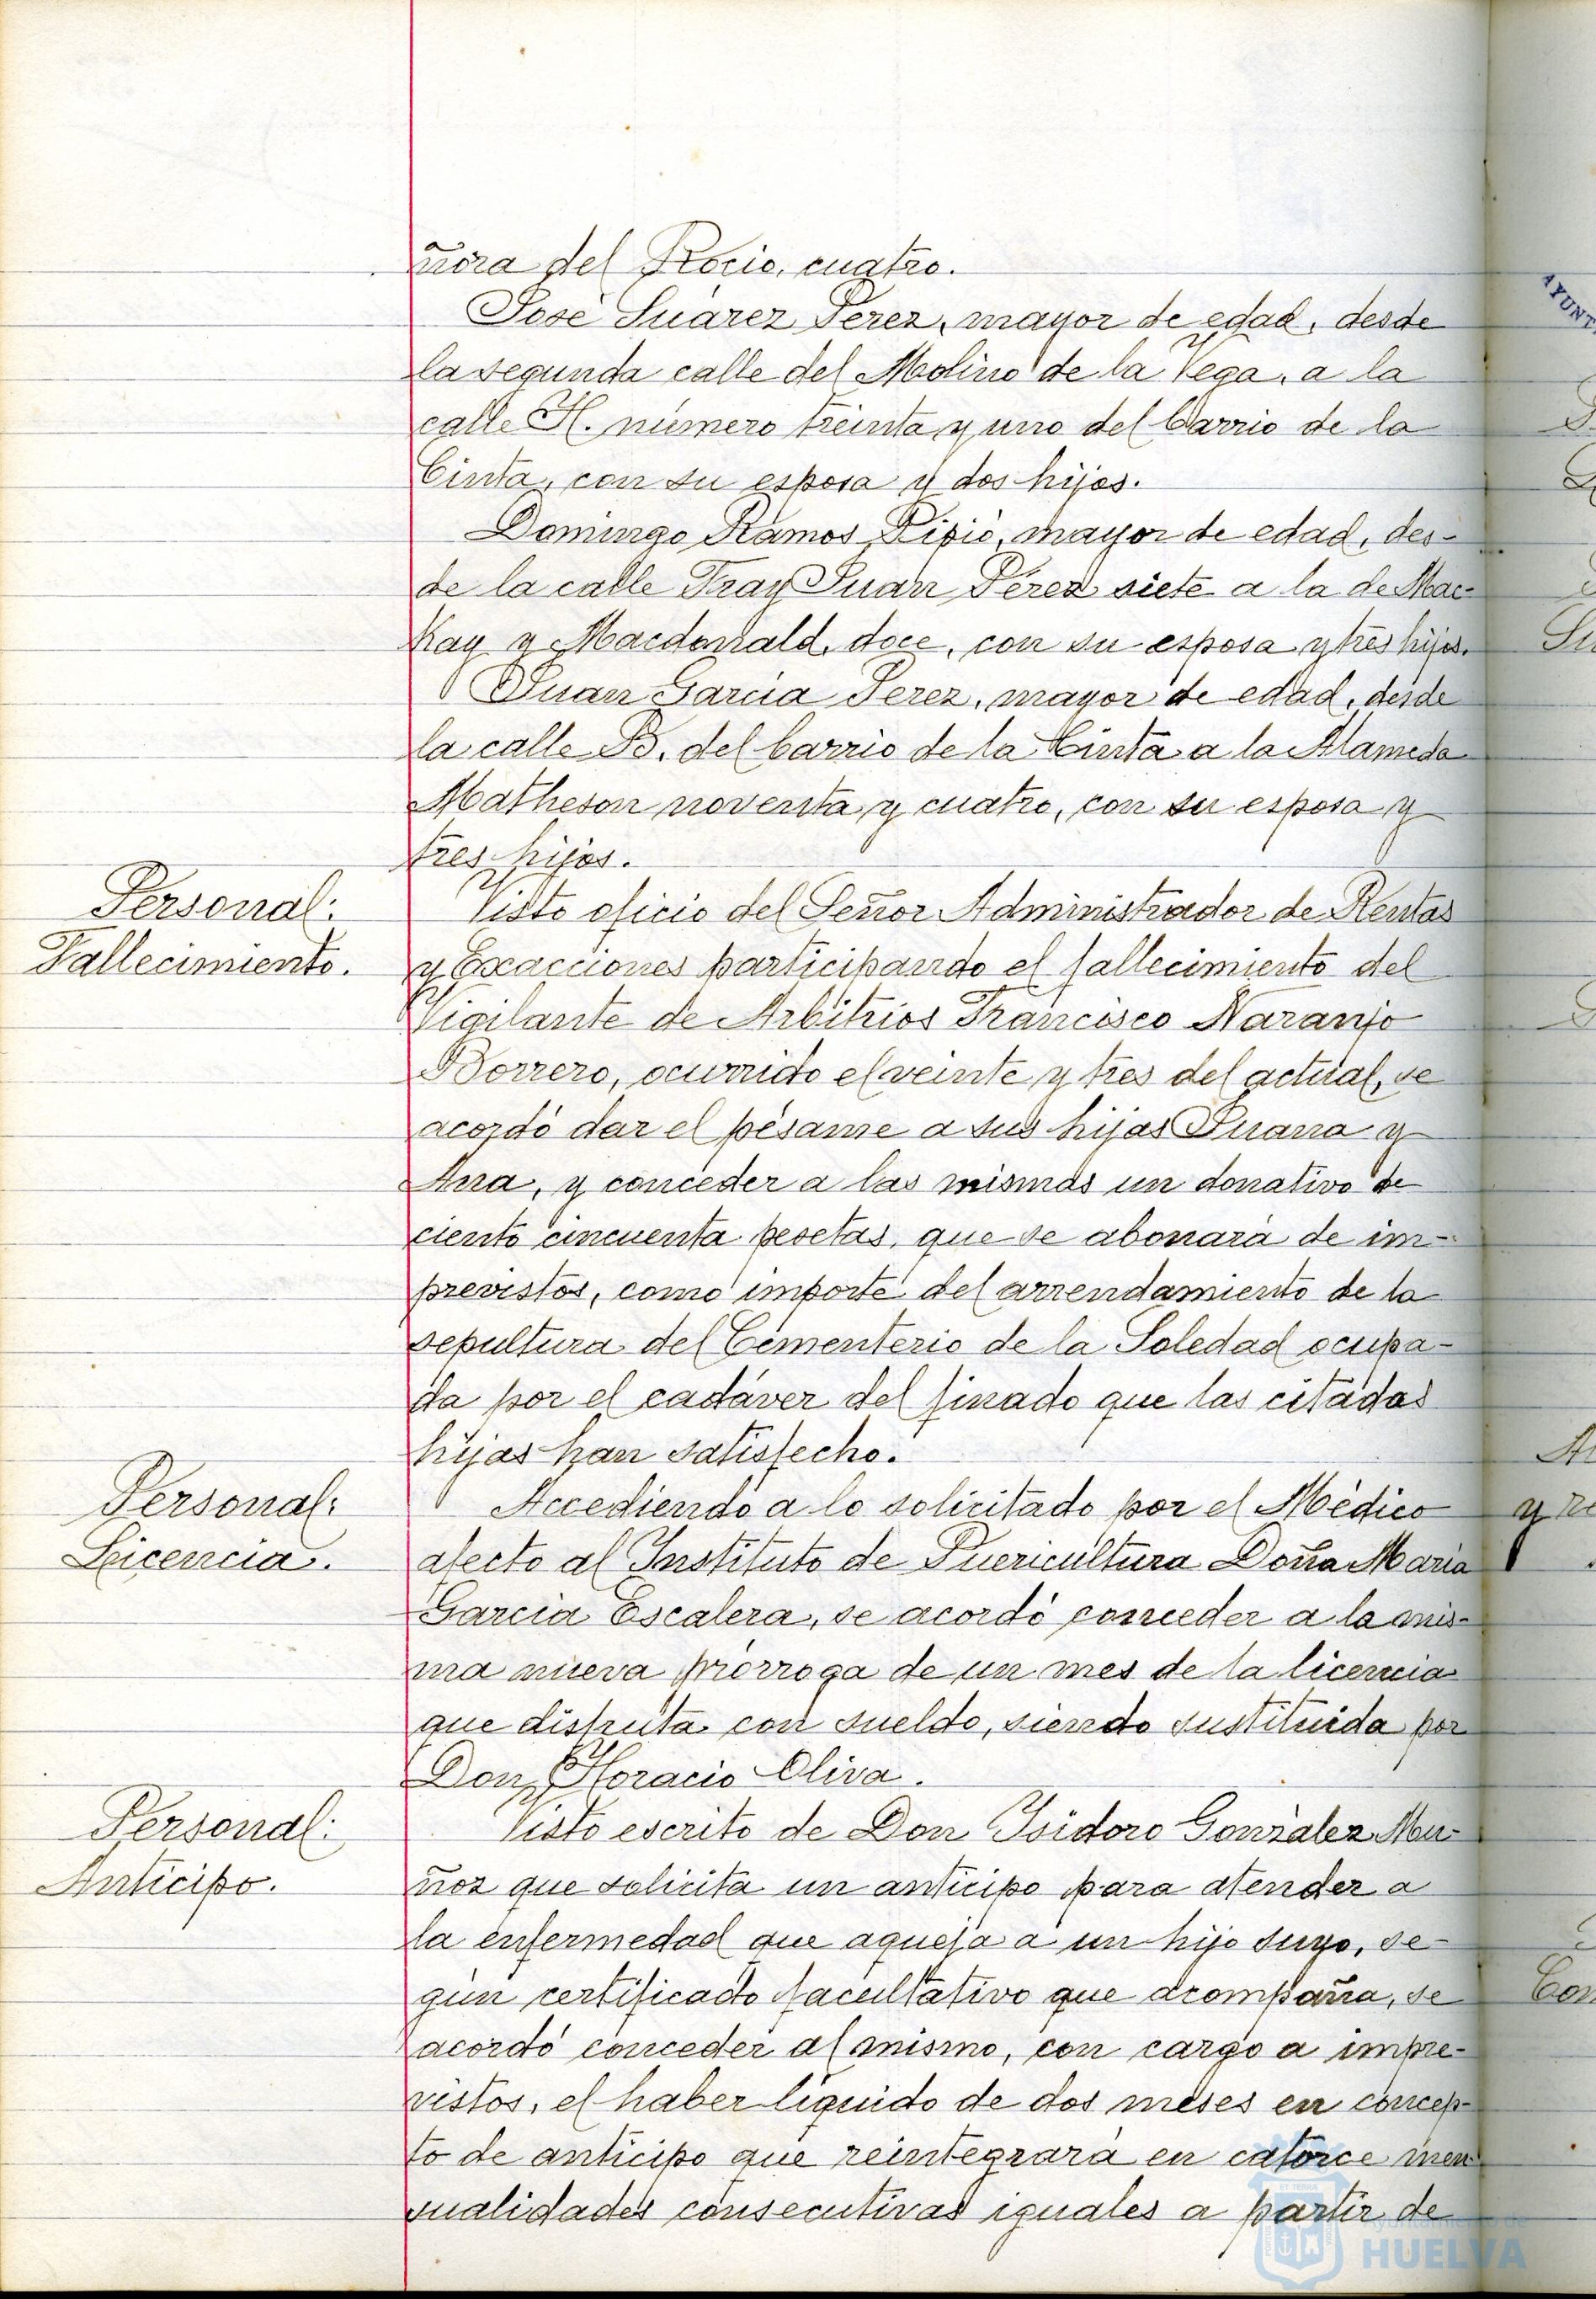 ñora del Rocio, cuatro.
José Suárez Perez, mayor de edad, desde
la segunda calle del Molino de la Vega, a la
calle H. número treinta y uno del barrio de la
Cinta, con su esposa y dos hijos.
Domingo Ramos, mayor de edad, des-
de la calle Fray Juan Pérez siete a la de Mac-
Kay y Macdonald, doce, con su esposa y tres hijos.
Juan Garcia Perez, mayor de edad, desde
la calle B. del barrio de la Cinta a la Alameda
Matheson noventa y cuatro, con su esposa y
tres hijos.
Personal:
Fallecimiento.
Visto oficio del Señor Administrador de Rentas
y Exacciones participando el fallecimiento del
Vigilante de Arbitrios Francisco Naranjo
Borrero, ocurrido el veinte y tres del actual, se
acordó dar el pésame a sus hijas Juana y
Ana, y conceder a las mismas un donativo de
ciento cincuenta pesetas, que se abonará de im-
previstos, como importe del arrendamiento de la
sepultura del Cementerio de la Soledad ocupa-
da por el cadáver del finado que las citadas
hijas han satisfecho.
Personal:
Licencia.
Accediendo a lo solicitado por el Médico
afecto al Instituto de Puericultura Doña Maria
Garcia Escalera, se acordó conceder a la mis-
ma nueva prórroga de un mes de la licencia
que disfruta con sueldo, siendo sustituida por
Don Horacio Oliva.
Personal:
Anticipo.
Visto escrito de Don Isidoro González Mu-
ñoz que solicita un anticipo para atender a
la enfermedad que aqueja a un hijo suyo, se-
gún certificado facultativo que acompaña, se
acordó conceder al mismo, con cargo a impre-
vistos, el haber liquido de dos meses en concep-
to de anticipo que reintegrará en catorce men
sualidades consecutivas iguales a partir de
HUELVA